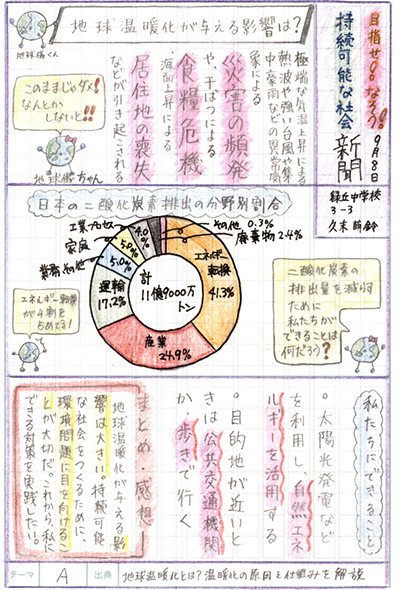 目指せ!!なろう!
持続可能な社会
新聞
9月8日
緑丘中学校
3-3
地球温暖化が与える影響は?
地球偉くん
極端な気温上昇による
熱波や強い台風や集
中豪雨などの異常気
象による
災害の頻発
や、干ばつによる
食糧危機
、海面上昇による
居住地の喪失
などが引き起こされる
このままじゃダメ!
なんとか
しないと!!
地球偉ちゃん
日本の二酸化炭素排出の分野別割合
計
11億9000万
トン
エネルギー
転換
41.3%
産業
24.9%
運輸
17.2%
業務その他
5.0%
家庭
5.0%
工業プロセス
4.0
%
その他 0.3%
廃棄物 2.4%
エネルギー転換
が4割を
占めてる!
二酸化炭素の
排出量を減らす
ために
私たちが
できることは
何だろう?
私たちにできること
○太陽光発電など
を利用し、自然エネ
ルギーを活用する
○目的地が近いと
きは公共交通機関
か、歩きで行く
まとめ・感想
地球温暖化が与える影
響は大きい。持続可能
な社会をつくるために、
環境問題に目を向けるこ
とが大切だ。これから、私に
できる対策を実践したい。
テーマ A 出典 地球温暖化とは?温暖化の原因と仕組みを解説